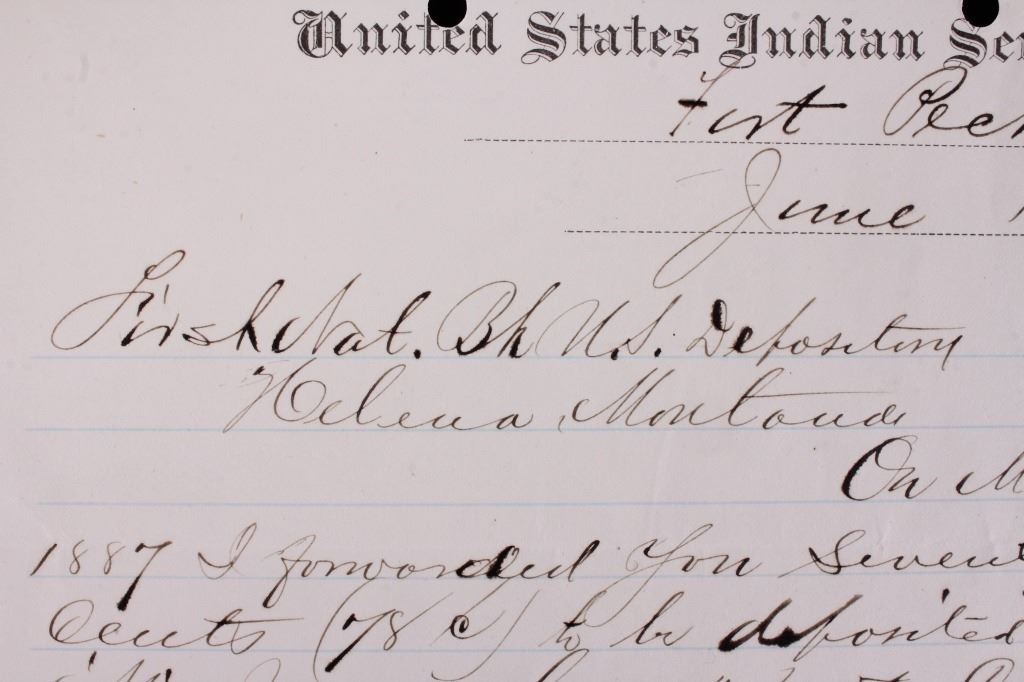 United States Indian Ser
Fort Peck
June 1
First Nat. Bk U.S. Depository
Helena Montana
On M
1887 I forwarded You Sevent
Cents (78 c) to be deposited